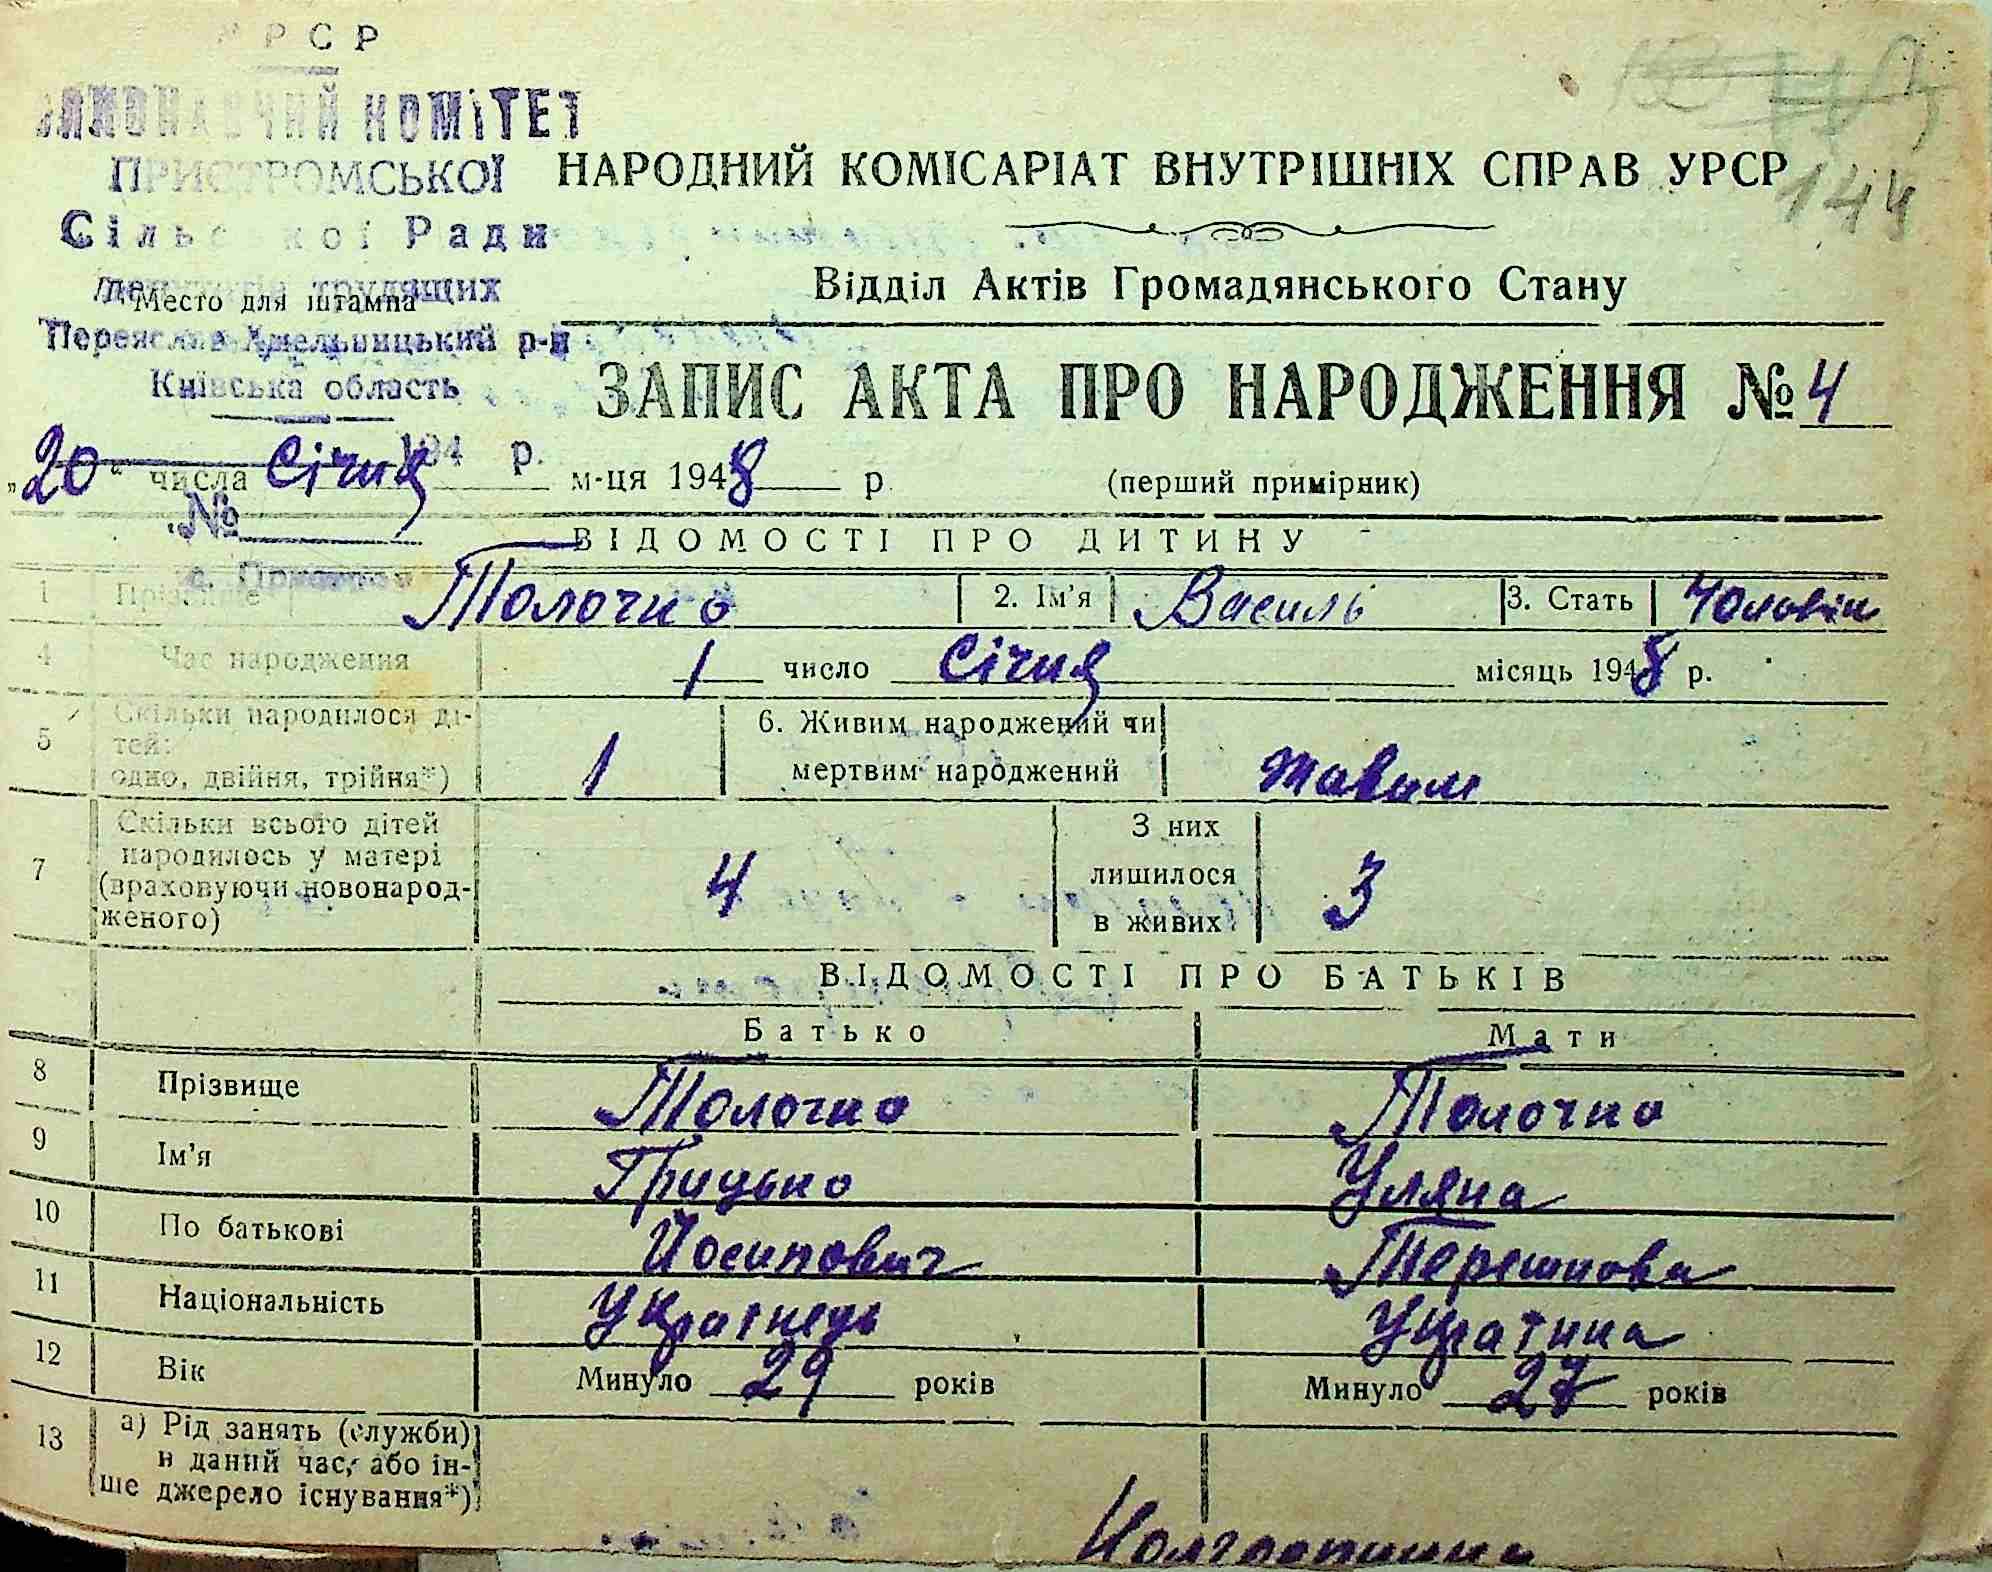 УРСР
ВИКОНАВЧИЙ КОМІТЕТ
ПРИСТРОМСЬКОЇ
Сільської Ради
депутатів трудящих
Место для штампа
Переяслав Хмельницький р-н
Київська область
194 р.
№
с. Пристроми
144
НАРОДНИЙ КОМІСАРІАТ ВНУТРІШНІХ СПРАВ УРСР
Відділ Актів Громадянського Стану
ЗАПИС АКТА ПРО НАРОДЖЕННЯ № 4
„20“ числа Січня м-ця 1948 р. (перший примірник)
ВІДОМОСТІ ПРО ДИТИНУ
1 Прізвище Толочко 2. Ім'я Василь 3. Стать Чоловік
4 Час народження 1 число Січня місяць 1948 р.
5 Скільки народилося ді-
тей:
одно, двійня, трійня*) 1
6. Живим народжений чи
мертвим народжений живим
7 Скільки всього дітей
народилось у матері
(враховуючи новонарод-
женого) 4
З них
лишилося
в живих 3
ВІДОМОСТІ ПРО БАТЬКІВ
Батько Мати
8 Прізвище Толочко Толочко
9 Ім'я Грицько Уляна
10 По батькові Йосипович Терешкова
11 Національність Українець Українка
12 Вік Минуло 29 років Минуло 27 років
13 а) Рід занять (служби)
в даний час, або ін-
ше джерело існування*)